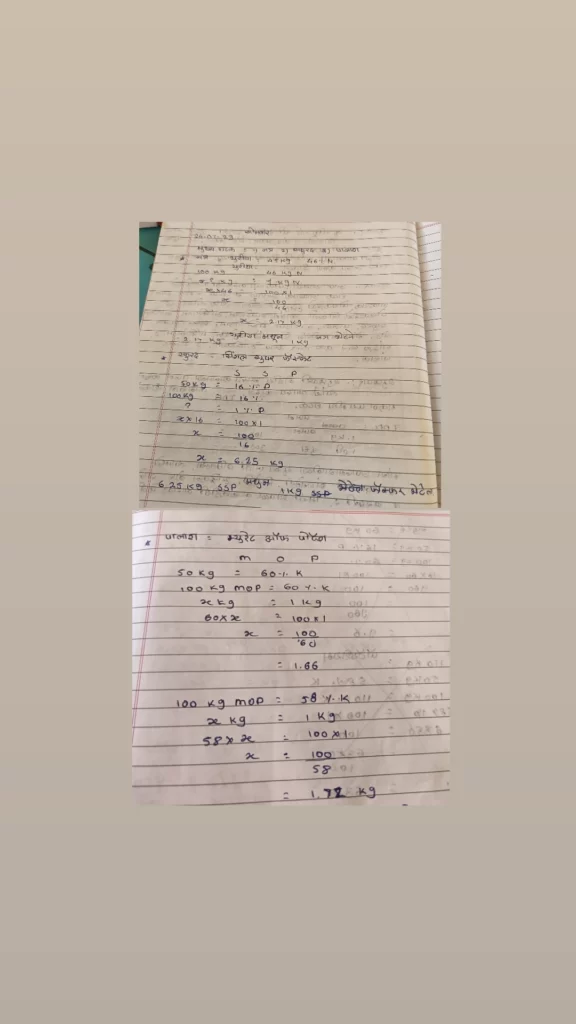 सोमवार
नत्र = युरिया = 45 kg 46% N
युरिया
100 kg 46 kg N
x kg = 1 kg N
x × 46 = 100 × 1
x = 100
46
x = 2.17 kg
2.17 kg 1 kg
* स्फुरद = सिंगल सुपर फॉस्फेट
S S P
50 kg = 16 % P
100 kg = 16 %
? = 1 % P
x × 16 = 100 × 1
x = 100
16
x = 6.25 kg
6.25 kg SSP मधुन 1 kg SSP भेटेल
* पालाश = म्युरेट ऑफ पोटॅश
M O P
50 kg = 60 % K
100 kg MOP = 60 % K
x kg = 1 kg
60 × x = 100 × 1
x = 100
60
= 1.66
100 kg MOP = 58 % K
x kg = 1 kg
58 × x = 100 × 1
x = 100
58
= 1.72 kg